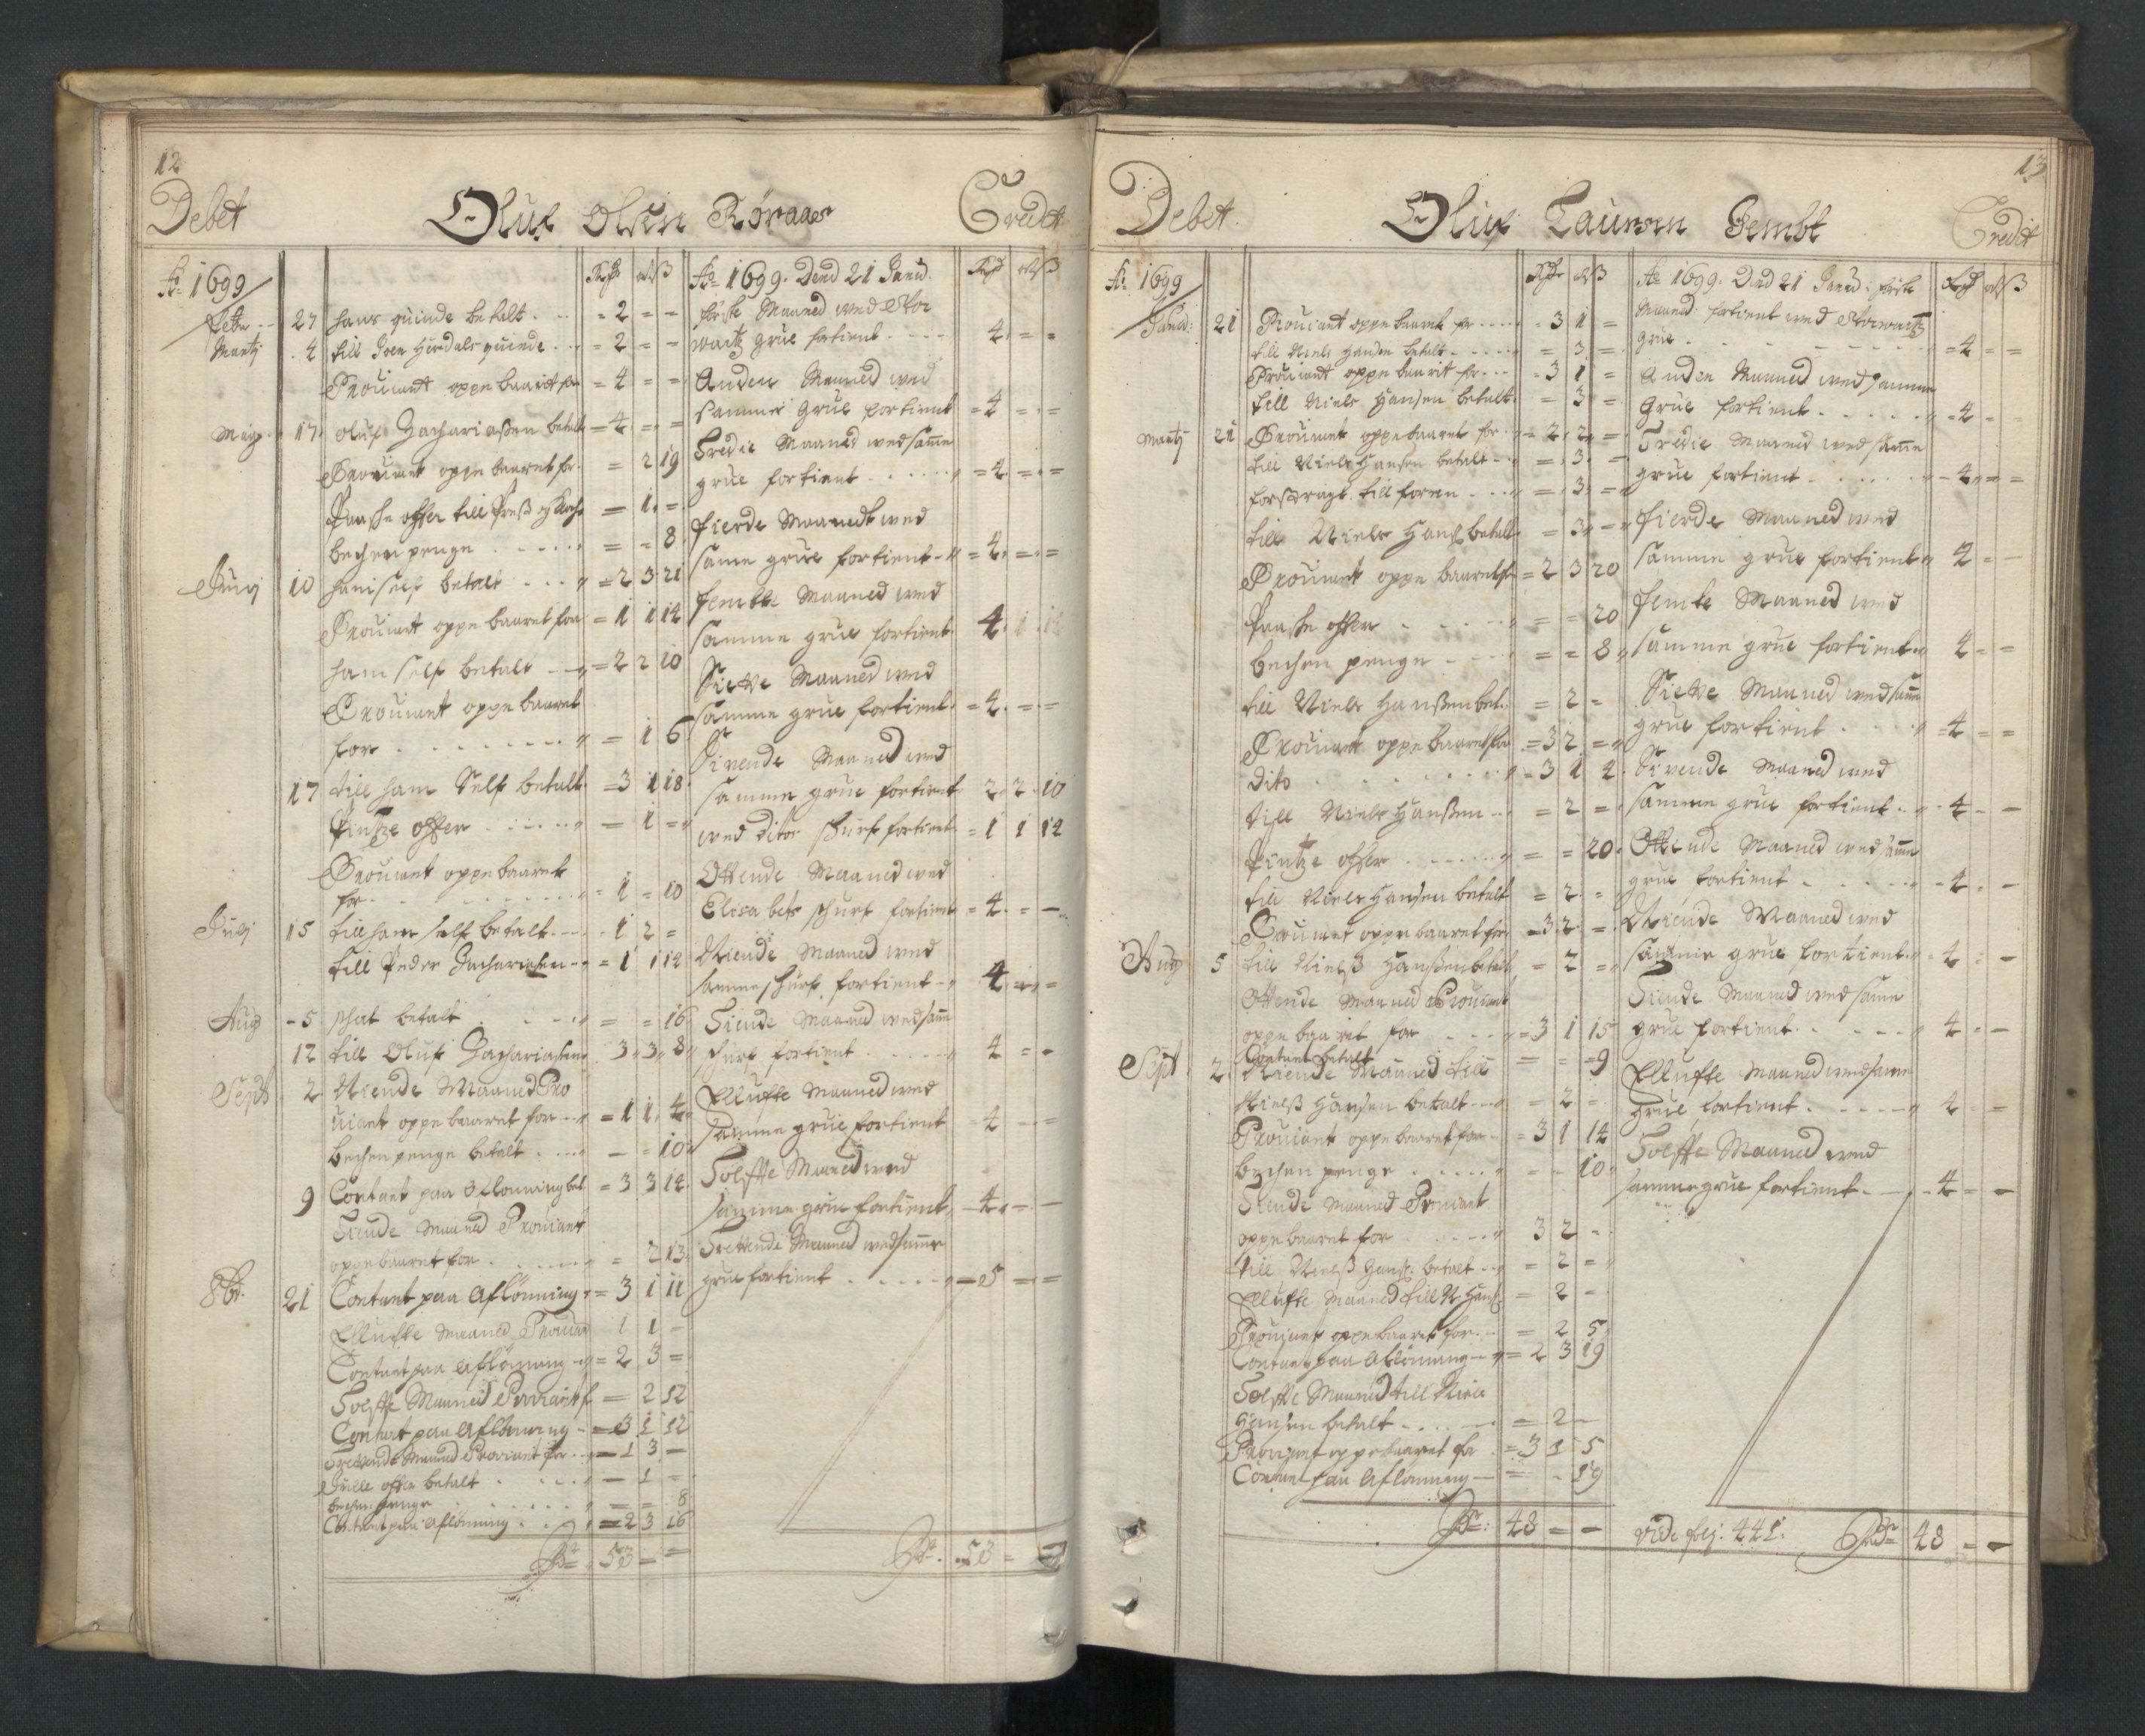 12
Debet
Oluf Olsen Røraaes
Credit
Ao 1699
Febr: 27 hans quinde betalt = 2 = =
Martj 4 till Joen Hirdals quinde = 2 = =
Prouiant oppebaarit for = 4 = =
Maij 17 Oluf Zachariassen betalt = 4 = =
Prouiant oppebaaret for = 2 19
Paasche offer till Prest og = 1 =
bechenpenge = = 8
Junj 10 ham self betalt = 2 3 21
Prouiant oppebaaret for = 1 1 14
ham self betalt = 2 2 10
Prouiant oppebaaret
for = 1 6
17 till ham Self betalt = 3 1 18
Pintze offer = 1 =
Prouiant oppebaaret
for = 1 = 10
Julj 15 till ham self betalt 1 2 =
till Peder Zachariasen = 1 1 12
Aug 5 schat betalt = = 16
12 till Oluf Zachariasen 3 3 8
Sept 2 Niende Maaned Pro
uiant oppebaaret for = 1 1 4
Bechenpenge betalt = = 10
9 Contant paa aflønning bet = 3 3 14
Tiende Maaned Prouiant
oppebaaret for = 2 13
8br: 21 Contant paa Aflønning = 3 1 11
Elluffte Maaned Prouiant 1 1 =
Contant paa Aflønning = 2 3 =
Tolffte Maaned Prouiant f = 2 12
Contant paa Aflønning = 3 1 12
Trettende Maaned Prouiant for = 1 3 =
Juelle offer betalt = 1 =
bechen penge = = 8
Contant paa aflønning = 2 3 16
53 = =
Ao 1699. Dend 21 Janu:
første Maaned wed Stor
wartz grue fortient 4 = =
Anden Maaned wed
samme Grue fortient = 4 = =
Tredie Maaned wed samme
grue fortient = 4 = =
fierde Maanedt wed
samme grue fortient = 4 = =
femte Maaned wed
samme grue fortient 4
Siette Maaned wed
samme grue fortient = 4 = =
Siuende Maaned wed
samme grue fortient 2 2 10
wed ditos schurf fortient = 1 1 14
Ottende Maaned wed
Elisabets schurf fortient = 4 = =
Niende Maaned wed
samme schurf fortient 4 = =
Tiende Maaned wed samme
schurf fortient 4 = =
Elluffte Maaned wed
samme grue fortient 4 = =
Tolffte Maaned wed
samme grue fortient 4 = =
Trettende Maaned wed samme
grue fortient = 5 = =
53 = =
13
Debet
Oluf Laursen Jembt
Credit
Ao 1699
Janu: 21 Prouiant oppebaaret for = 3 1 =
till Niels Hansen betalt = 3 =
Prouiant oppebaarit for = 3 1 =
till Niels Hansen betalt = 3 =
Martj 21 Prouiant oppebaaret for = 2 2 =
till Niels Hansen betalt = 3 =
forstragt till foren = 3 =
till Niels Hans betalt = 3 =
Prouiant oppebaaret for = 2 3 20
Paasche offer = = 20
bechen penge = = 8
till Niels Hanssen bet: = 2 =
Prouiant oppebaaret for = 3 2 =
dito = 3 1 4
till Niels Hanssen = 2 =
Pintze offer = = 20
till Niels Hansen betalt = 2 =
Prouiant oppebaaret for = 3 2 =
Aug 5 till Nielss Hanssen betalt = 2 =
Ottende Maaned Prouiant
oppebaarit for = 3 1 15
Contant betalt = = 9
Sept 2 Niende Maaned till
Nielss Hansen betalt = 2 =
Prouiant oppebaaret for = 3 1 14
bechen penge = = 10
Tiende Maaned Prouiant
oppebaaret for 3 2 =
till Nielss Hanss: betalt = 2 =
Elluffte Maaned till N: Hanss: = 2 =
Prouiant oppebaaret for = 2 5
Contant paa Aflønning = 2 3 19
Tolffte Maaned till Niels
Hansen betalt = 2 =
Prouiant oppebaaret for = 3 1 5
Contant paa Aflønning = = 19
48 = =
Ao 1699. Dend 21 Janu: første
Maaned fortient wed Storwartz
grue = 4 = =
Anden Maaned wed samme
Grue fortient = 4 = =
Tredie Maaned wed samme
grue fortient = 4 = =
fierde Maaned wed
samme grue fortient 4 = =
femte Maaned wed
samme grue fortient 4 = =
Siette Maaned wed samme
grue fortient = 4 = =
Siuende Maaned wed
samme grue fortient = 4 = =
Ottende Maaned wed samme
grue fortient = 4 = =
Niende Maaned wed
samme grue fortient = 4 = =
Tiende Maaned wed samme
grue fortient 4 = =
Elluffte Maaned wed samme
grue fortient 4 = =
Tolffte Maaned wed
samme grue fortient = 4 = =
vide folj: 441. 48 = =